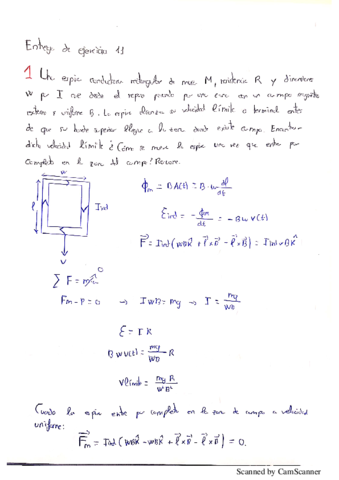 Entrega de ejercicios 11
1 Una espira conductora rectangular de masa M, resistencia R y dimensiones
w por l cae desde el reposo por un campo magnético
externo y uniforme B. La espira alcanza su velocidad límite o terminal antes
de que su lado superior llegue a la zona donde existe campo. Encontrar
dicha velocidad límite ¿Cómo se mueve la espira una vez que entra por
completo en la zona del campo? Razone.
w
l
I ind
v
ϕm = B A(t) = B·w dl/dt
ξind = -ϕm/dt = -B w v(t)
F = I ind (wBk̂ + l×B - l×B) = I ind w B k̂
∑ F = m/a 0
Fm - P = 0 → I W B = mg → I = mg/WB
ξ = I R
B w v(t) = mg/WB R
v límite = mg R/W²B²
Cuando la espira entra por completo en la zona de campo a velocidad
uniforme:
Fm = I ind (wBk̂ - wBk̂ + l×B - l×B) = 0.
Scanned by CamScanner